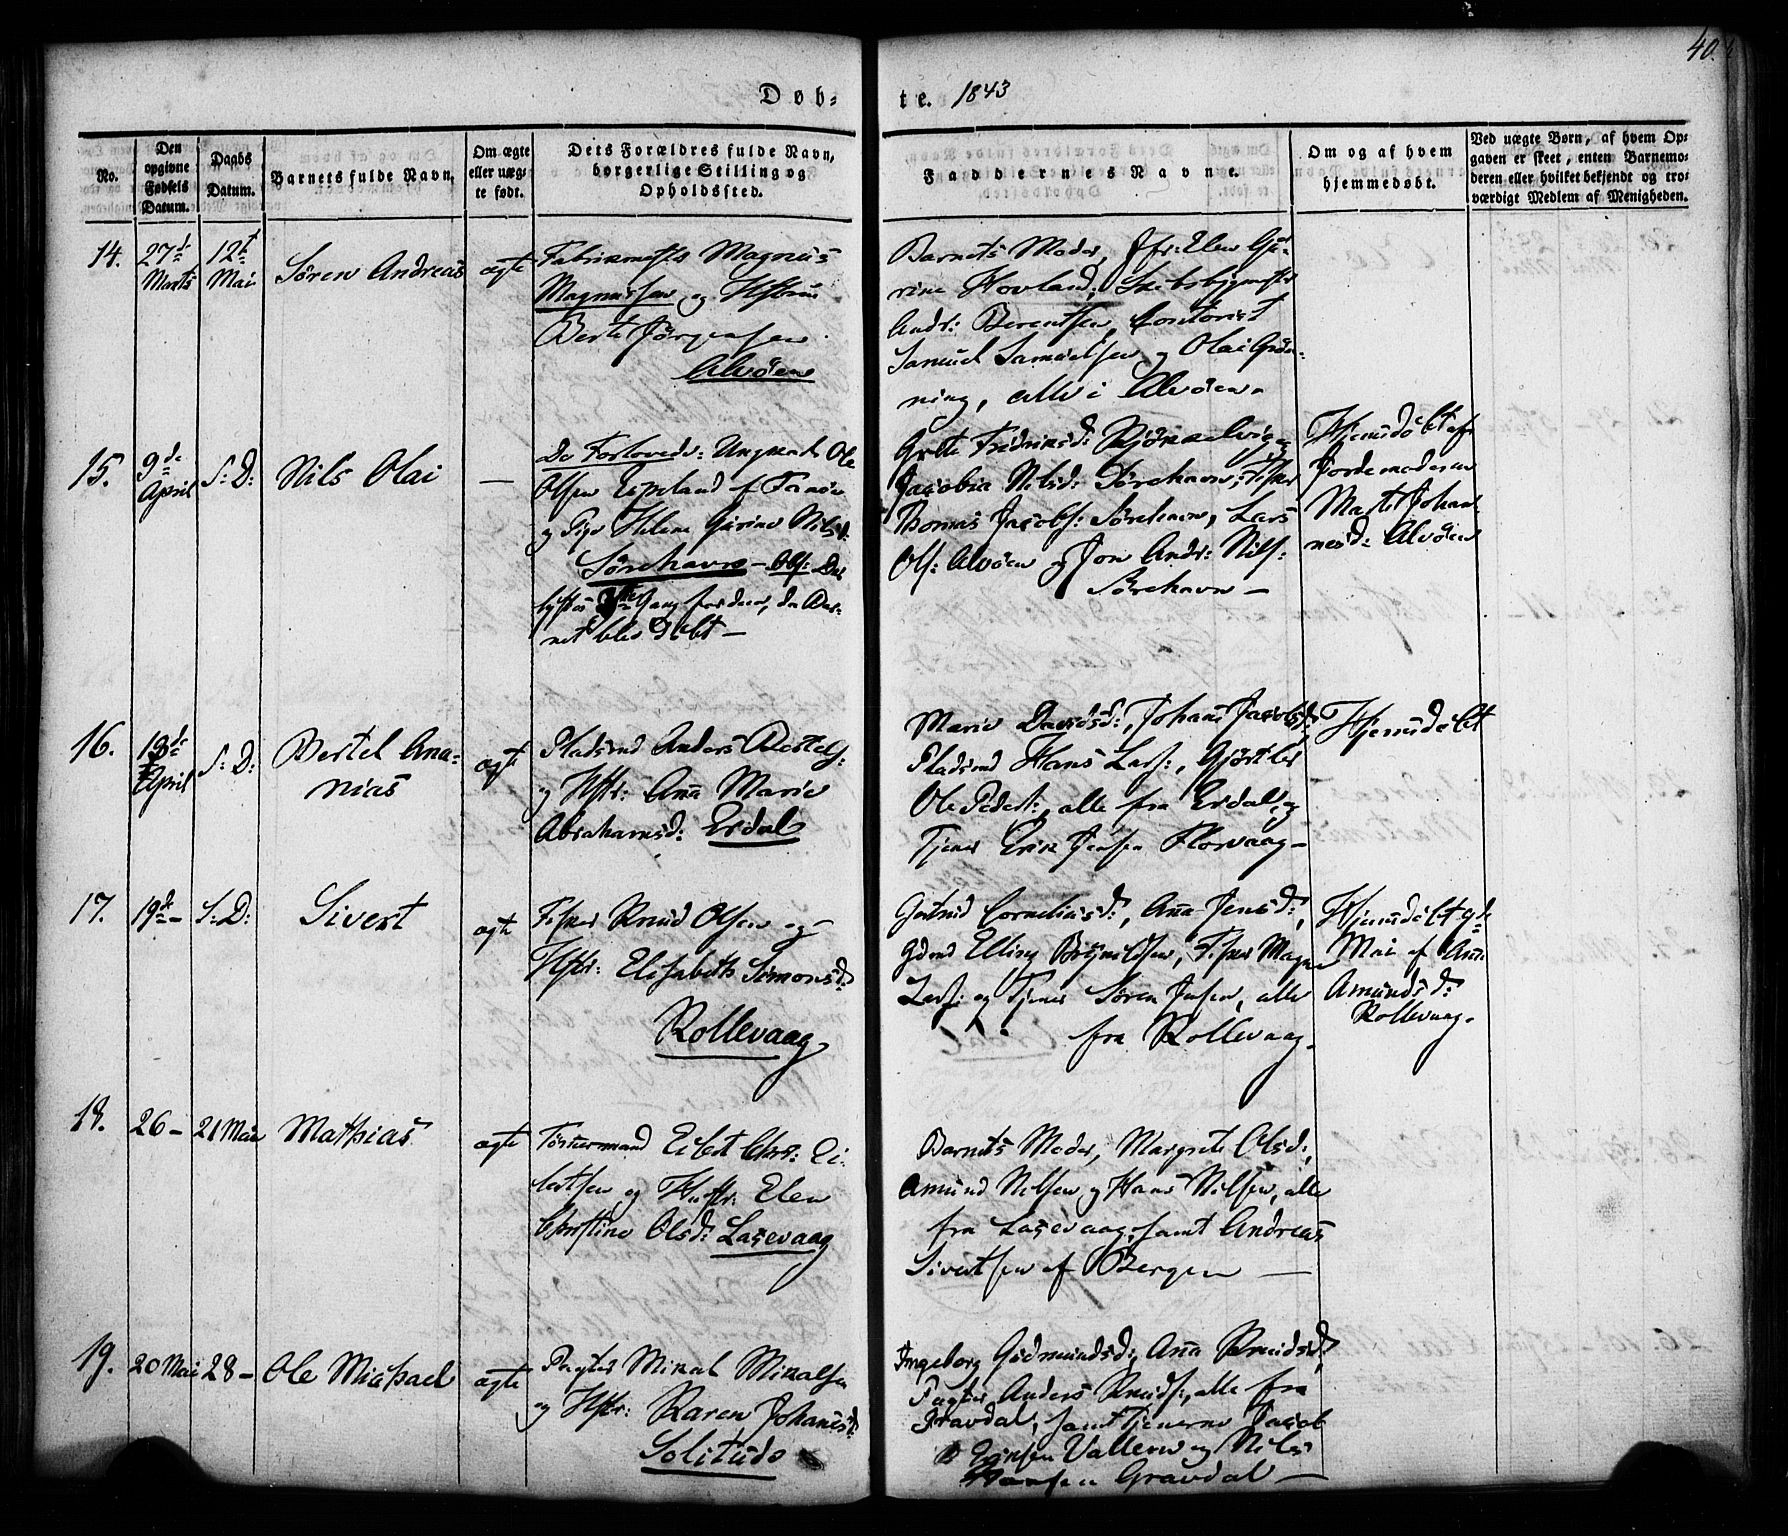 40.
Døb=
te. 1843
No.
Den opgivne Fødsels Datum.
Daabs Datum.
Barnets fulde Navn.
Om ægte eller uæg-
te født.
Dets Forældres fulde Navn,
borgerlige Stilling og
Opholdssted.
Faddernes Navne.
Om og af hvem
hjemmedøbt.
Ved uægte Børn, af hvem Op-
gaven er skeet, enten Barnemo-
deren eller hvilket bekjendt og tro-
værdigt Medlem af Menigheden.
14.
27de Marts
12te Mai
Søren Andreas
ægte
Magnus
Magnussen og Hstru
Jørgensen
Alvöen
Barnets Moder, Jfr: Elen Gu-
rine Hovland,
Andr: Berentsen, Contorist
Samuel Samuelsen og Olai Grön-
ning, alle i Alvöen.
15.
9de April
S: D:
Nils Olai
—
De Forlovede: Ungkarl Ole
Olsen
og Pige Helene Gurine Nilsd:
Sörehavn —
Gang før den, da Bar-
net blev Døbt —
Jacobia Nilsd: Sörehavn, Fisker
Thomas Jacobs: Sörehavn, Lars
Ols: Alvöen og Jon Andr: Nils:
Sörehavn —
Hjemdöbt af
Jordemoderen
Johan-
nesd: Alvöen
16.
April
S: D:
Bertel Ana-
nias
ægte
Pladsmd Anders
og Hstr: Ana Marie
Abrahamsd: Erdal
Marie Davidsd:,
Pladsmd Hans Lars:, Gjörtler
Ole Peders:, alle fra Erdal, og
Tjener Erik Jensen Florvaag —
Hjemdöbt
17.
19de —
S: D:
Sivert
ægte
Fisker Knud Olsen og
Hstr: Elisabeth Simonsd:
Rollevaag
Gertrud Corneliusd:, Ana Jensd:,
Gdmd Elling Brynildsen, Fisker Magne
Lars: og Tjener Sören Jensen, alle
fra Rollevaag.
Hjemdöbt 9de
Mai af Ane
Amundsd:
Rollevaag.
18.
26 —
21 Mai
Mathias
ægte
Tömmermand Eilert Chrs: Ei-
lertsen og Hustr: Elen
Christine Olsd: Laxevaag
Barnets Moder, Margrete Olsd:,
Amund Nilsen og Hans Nilsen, alle
fra Laxevaag, samt Andreas
Sivertsen af Bergen —
19.
20 Mai
28 —
Ole Michael
ægte
Pagter Mikal Mikalsen
og Hstr: Karen Johannesd:
Solitude
Ingeborg Gudmundsd:, Ana Knudsd:,
Pagter Anders Knuds:, alle fra
Gravdal, samt Tjenerne Jacob
Eriksen Vallem og Nils
Hansen Gravdal —